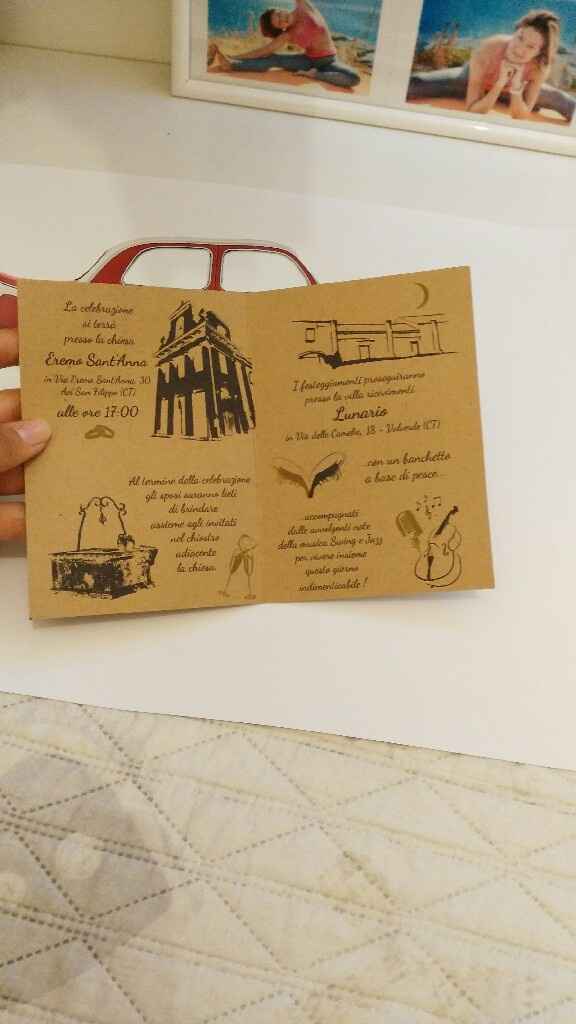 La celebrazione
si terrà
presso la chiesa
Eremo Sant'Anna
in Via Eremo Sant'Anna, 30
Aci San Filippo (CT)
alle ore 17:00
Al termine della celebrazione
gli sposi saranno lieti
di brindare
assieme agli invitati
nel chiostro
adiacente
la chiesa.
I festeggiamenti proseguiranno
presso la villa ricevimenti
Lunario
in Via delle Camelie, 18 - Valverde (CT)
...con un banchetto
a base di pesce...
...accompagnati
dalle avvolgenti note
della musica Swing e Jazz
per vivere insieme
questo giorno
indimenticabile !